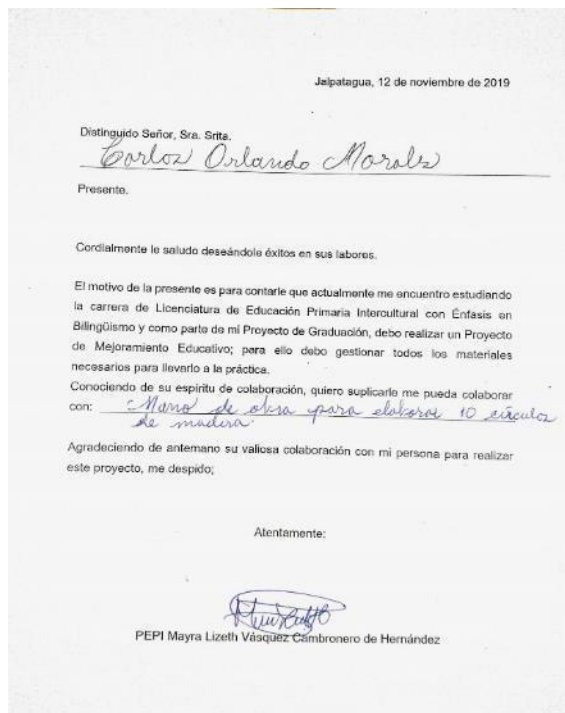 Jalpatagua, 12 de noviembre de 2019
Distinguido Señor, Sra. Srita.
Carlos Orlando Morales
Presente.
Cordialmente le saludo deseándole éxitos en sus labores.
El motivo de la presente es para contarle que actualmente me encuentro estudiando
la carrera de Licenciatura de Educación Primaria Intercultural con Énfasis en
Bilingüismo y como parte de mi Proyecto de Graduación, debo realizar un Proyecto
de Mejoramiento Educativo; para ello debo gestionar todos los materiales
necesarios para llevarlo a la práctica.
Conociendo de su espíritu de colaboración, quiero suplicarle me pueda colaborar
con: Mano de obra para elaborar 10 círculos
de madera.
Agradeciendo de antemano su valiosa colaboración con mi persona para realizar
este proyecto, me despido;
Atentamente:
PEPI Mayra Lizeth Vásquez Cambronero de Hernández